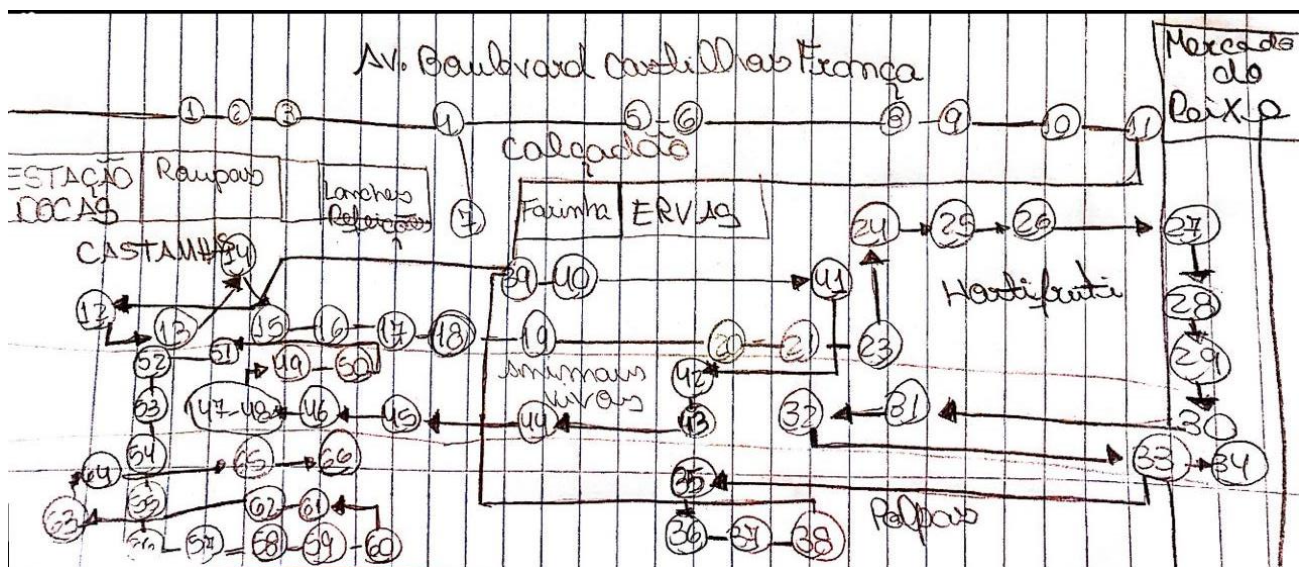 AV. Boulevard Castilhos França
Mercado
do
Peixe
1 2 3 4 5 6 8 9 10 11
Calçadão
ESTAÇÃO
DOCAS
Roupas
Lanches
Refeições
7
Farinha
ERVAS
24 25 26 27
CASTANHAS
14
39 40 41
Hortifruti
12 13 15 16 17 18 19 20 21 23
28
52 51 49 50
animais
vivos
42
29
53 47-48 46 45 44 43 32 31 30
54
64 65 66
35
33 34
55
63 62 61
Polpas
56 57 58 59 60
36 37 38